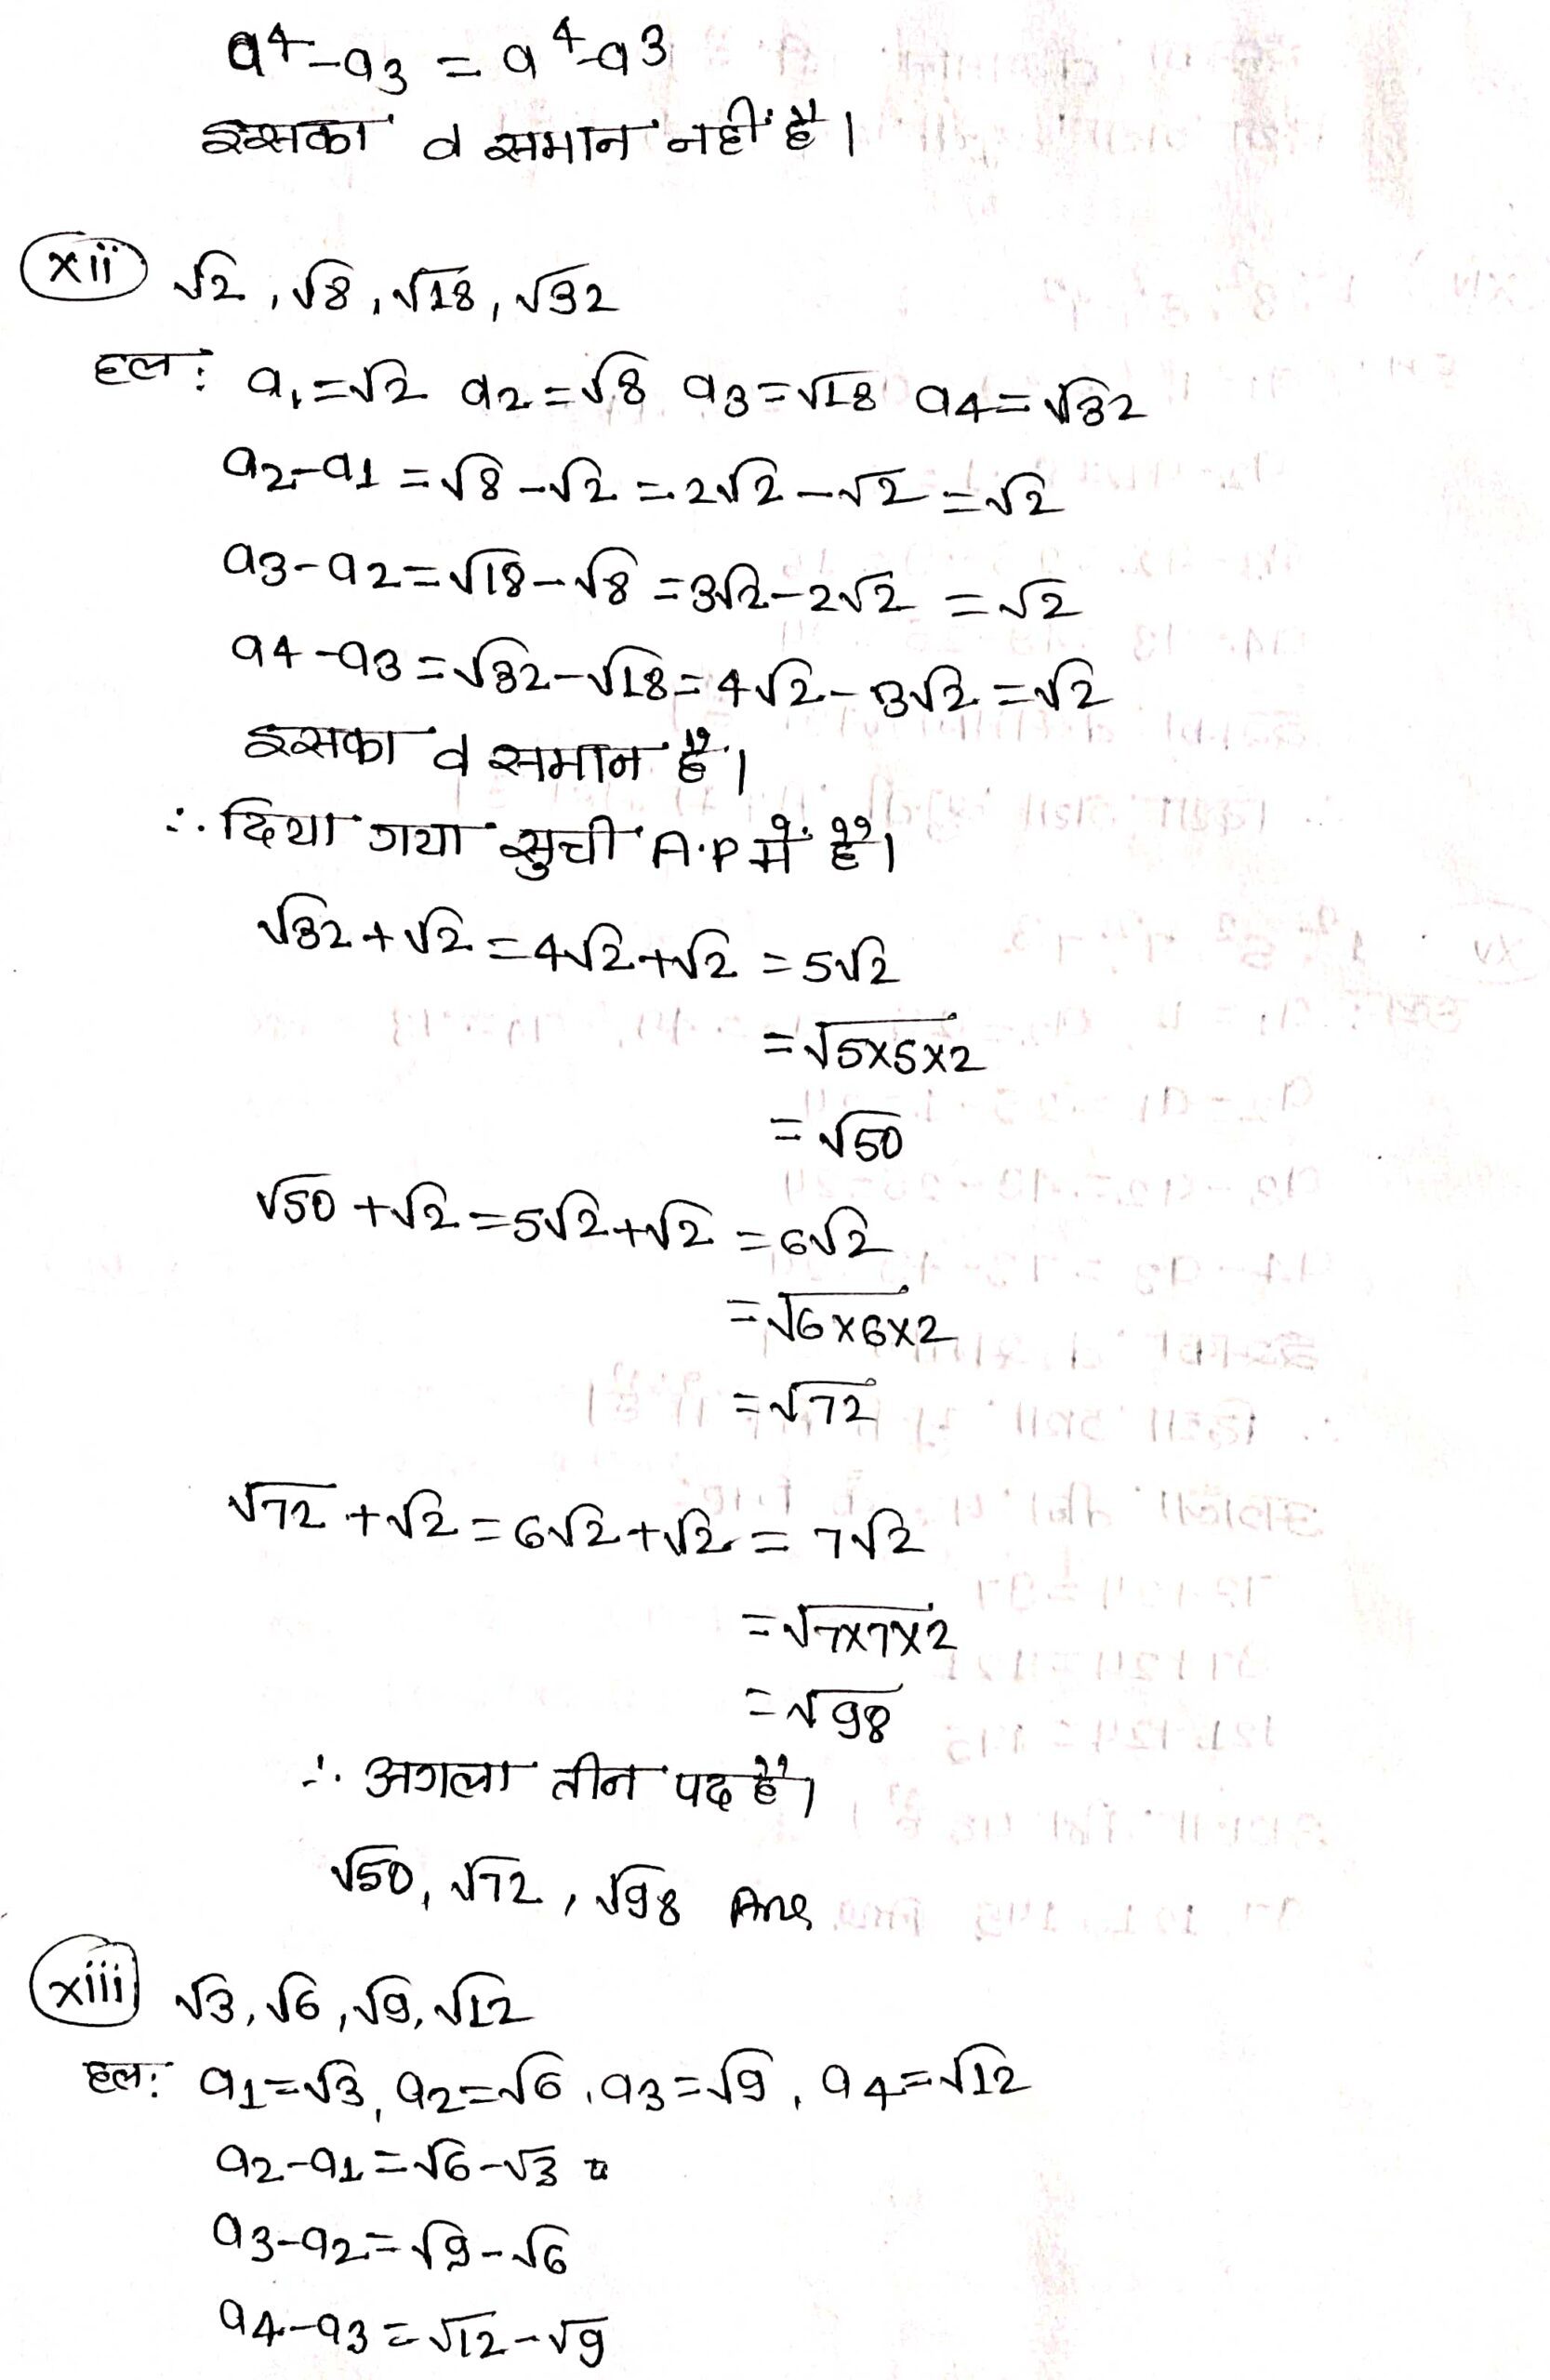 a4-a₃ = a⁴-a³
इसका d समान नहीं है।
(xii) √2, √8, √18, √32
हल: a₁=√2 a₂=√8 a₃=√18 a₄=√32
a₂-a₁=√8-√2=2√2-√2=√2
a₃-a₂=√18-√8=3√2-2√2=√2
a₄-a₃=√32-√18=4√2-3√2=√2
इसका d समान है।
∴ दिया गया सुची A.P में है।
√32+√2=4√2+√2=5√2
=√5×5×2
=√50
√50+√2=5√2+√2=6√2
=√6×6×2
=√72
√72+√2=6√2+√2=7√2
=√7×7×2
=√98
∴ अगला तीन पद है।
√50, √72, √98 Ans
(xiii) √3, √6, √9, √12
हल: a₁=√3, a₂=√6, a₃=√9, a₄=√12
a₂-a₁=√6-√3
a₃-a₂=√9-√6
a₄-a₃=√12-√9